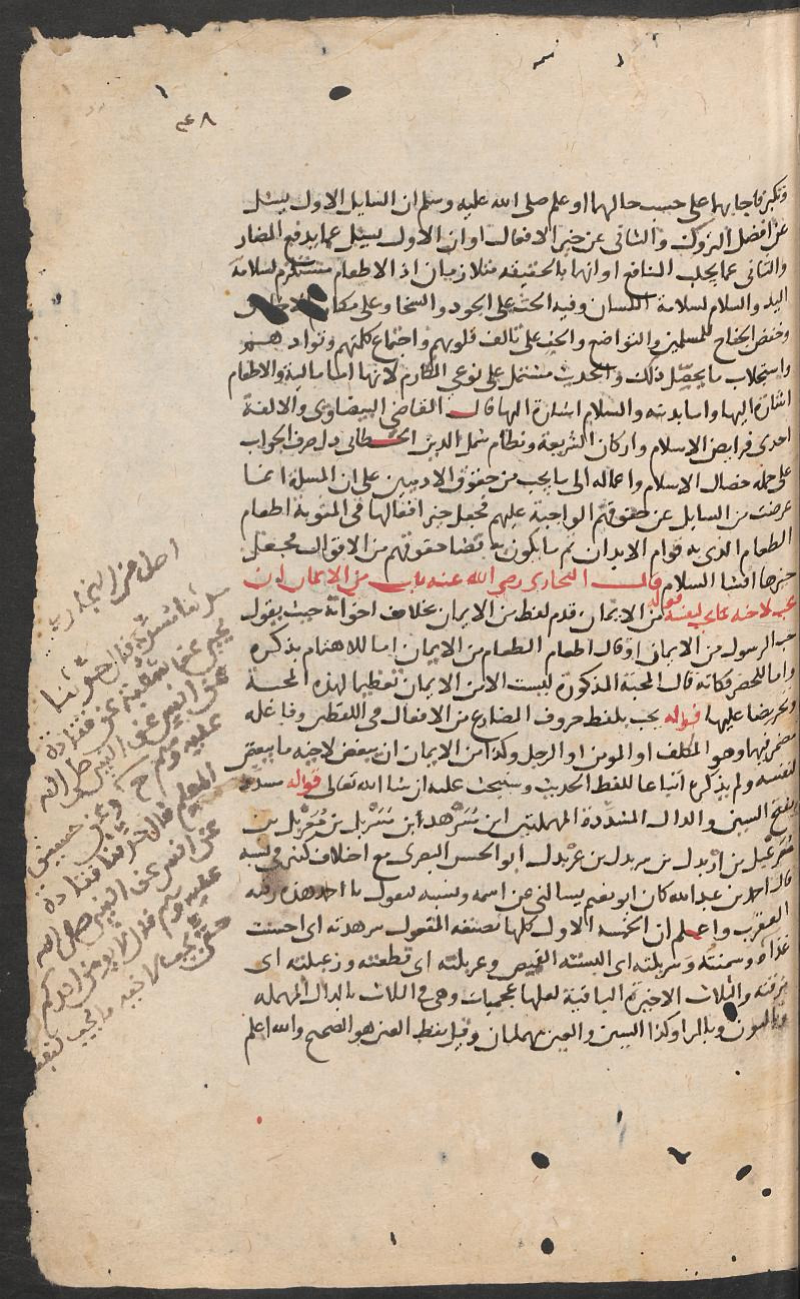 ٤٨
وتكبر فاجابهما على حسب حالهما او علم صلى الله عليه وسلم ان السايل الاول يسئل
عن افضل التروك والثاني عن خير الافعال او ان الاول يسئل عما يدفع المضار
والثاني عما يجلب المنافع او انهما بالحقيقه متلازمان اذ الاطعام مستلزم لسلامة
اليد والسلام لسلامة اللسان وفيه الحث على الجود والسخا وعلى مكارم الاخلاق
وخفض الجناح للمسلمين والتواضع والحث على تالف قلوبهم واجتماع كلمتهم وتوادهم
واستجلاب ما يحصل ذلك والحديث مشتمل على نوعي المكارم لانها اما مالية والاطعام
اشارة اليها واما بدنيه والسلام اشارة اليها قال القاضي البيضاوي والالفة
احدى فرايض الاسلام واركان الشريعة ونظام شمل الدين الخطابي دل صرف الجواب
على جمله خصال الاسلام واعماله الى ما يجب من حقوق الادميين على ان المسلة انما
عرضت من السايل عن حقوقهم الواجبة عليهم فجعل خير افعالها في المثوبة اطعام
الطعام الذي به قوام الابدان ثم ما يكون به قضا حقوقهم من الاقوال فجعل
خيرها افشا السلام قال البخاري رضي الله عنه باب من الايمان ان
يحب لاخيه ما يحب لنفسه قوله من الايمان قدم لفظ من الايمان بخلاف اخواته حيث يقول
حب الرسول من الايمان او قال اطعام الطعام من الايمان اما للاهتمام بذكره
واما للحصر فكانه قال المحبة المذكورة ليست الا من الايمان تعظيما لهذه المحبة
وتحريضا عليها قوله يحب بلفظ حروف المضارع من الافعال في اللفظين وفاعله
مضمر فيها وهو المكلف او المومن او الرجل وكذا من الايمان ان يبغض لاخيه ما يبغض
لنفسه ولم يذكره اتباعا للفظ الحديث وسيجث عليه ان شا الله تعالى قوله مسدد
بفتح السين والدال المشددة المهملتين ابن مسرهد ابن مسربل بن مغربل بن
مرعبل بن ارندل بن سرندل بن عرندل ابو الحسن البصري مع اختلاف كثير في نسبه
قال احمد بن عبد الله كان ابو نعيم يسالني عن اسمه ونسبه فيقول يا احمد هذه رقية
العقرب واعلم ان الخمسه الاول كلها بصيغه المفعول سرهدته اي احسنت
غذاه وسمنته وسربلته اي البسته القميص وغربلته اي قطعته ورعبلته اي
مزقته والثلاث الاخيرة الباقية لعلها عجميات وهي في الثلاث بالدال المهمله
وبالنون وبالرا وكذا السين والعين مهملتان وقيل بنقط العين هو الصحيح والله اعلم
اصل من البخاري
حدثنا مسدد قال حدثنا
يحيى عن شعبة عن قتادة
عن انس عن النبي صلى الله
عليه وسلم ح وعن حسين
المعلم قال حدثنا قتادة
عن انس عن النبي صلى الله
عليه وسلم قال لا يومن احدكم
حتى يحب لاخيه ما يحب لنفسه